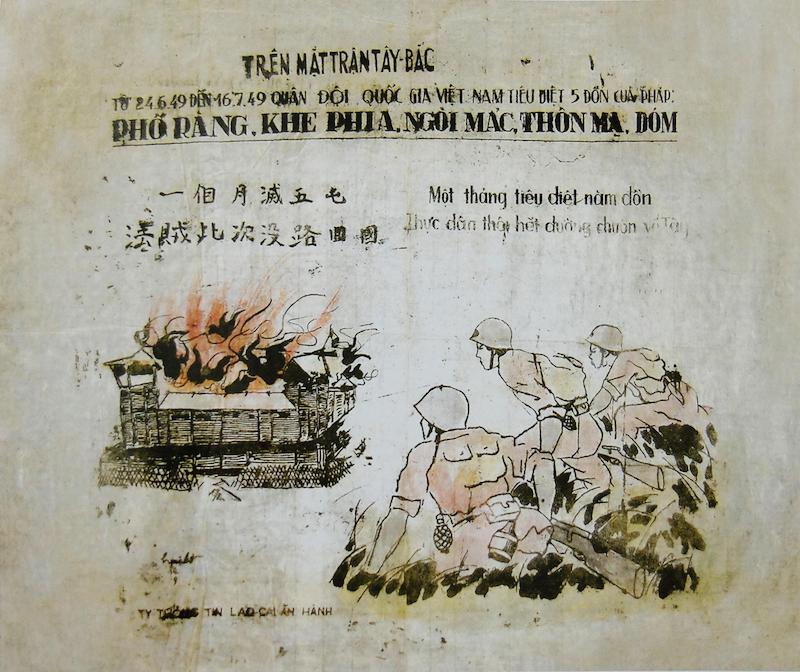 TRÊN MẶT TRẬN TÂY-BẮC
TỪ 24.6.49 ĐẾN 16.7.49 QUÂN ĐỘI QUỐC GIA VIỆT NAM TIÊU DIỆT 5 ĐỒN CUẢ PHÁP:
PHỐ RÀNG, KHE PHIA, NGÒI MÁC, THÔN MẠ, DÓM
一個月滅五屯
法賊此次没路回國
Một tháng tiêu diệt năm đồn
Thực dân thôi hết đường chuồn về Tây
TY THÔNG TIN LAO-CAI ẤN HÀNH